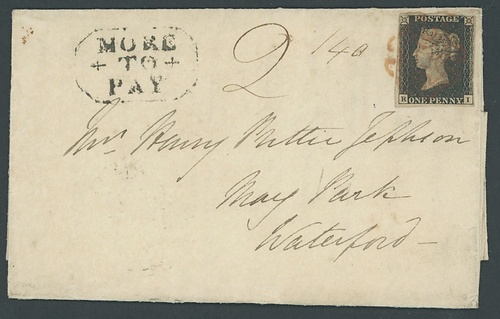 MORE
+ TO +
PAY
2
140
POSTAGE
R ONE PENNY I
Mrs Henry Pettie Jephson
May Park
Waterford